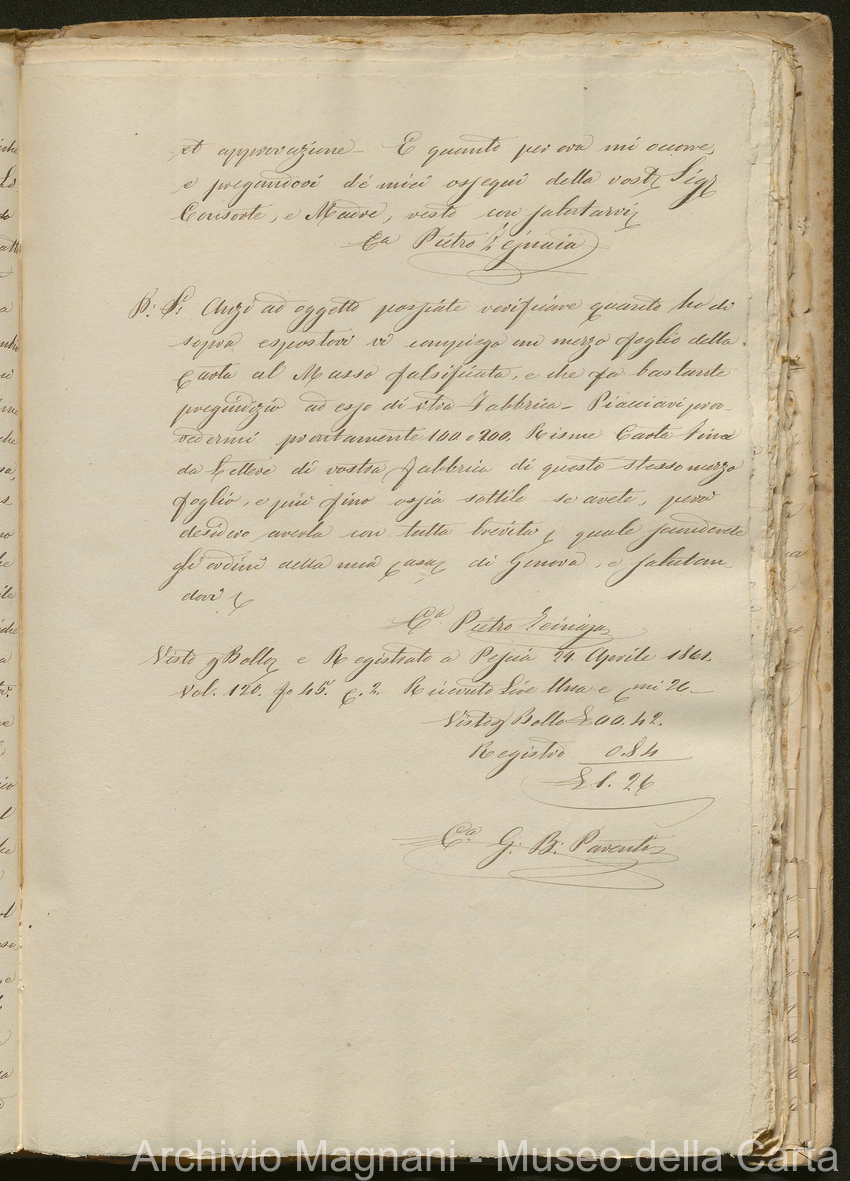 et approvazione - E quanto per ora mi occorre,
e pregandovi de miei ossequi della vost. Sig.
Consorte, e Madre, resto con salutarvi
Ca Pietro
P: S: Anzi ad oggetto possiate verificare quanto ho di
sopra espostovi vi compiego un mezzo foglio della
Carta al Masso falsificata, e che fa bastante
pregiudizio ad esso di altra Fabbrica - Piacciavi prov-
vedermi prontamente 100 o 200. Risme Carta fina
da Lettere di vostra fabbrica di questo stesso mezzo
foglio, e più fino ossia sottile se avete, però
desidero averla con tutta brevità, quale
gli ordini della mia Casa di Genova, e salutan
dovi
Ca Pietro
Visto p Bollo e Registrato a Pescia 24. Aprile 1861.
Vol. 120. fo 45. C. 2. Ricevuto Lire Una e Cmi 26 -
Visto p Bollo £ 00. 42.
Registro 0. 84
£ 1. 26
Ca G. B. Parenti
Archivio Magnani - Museo della Carta